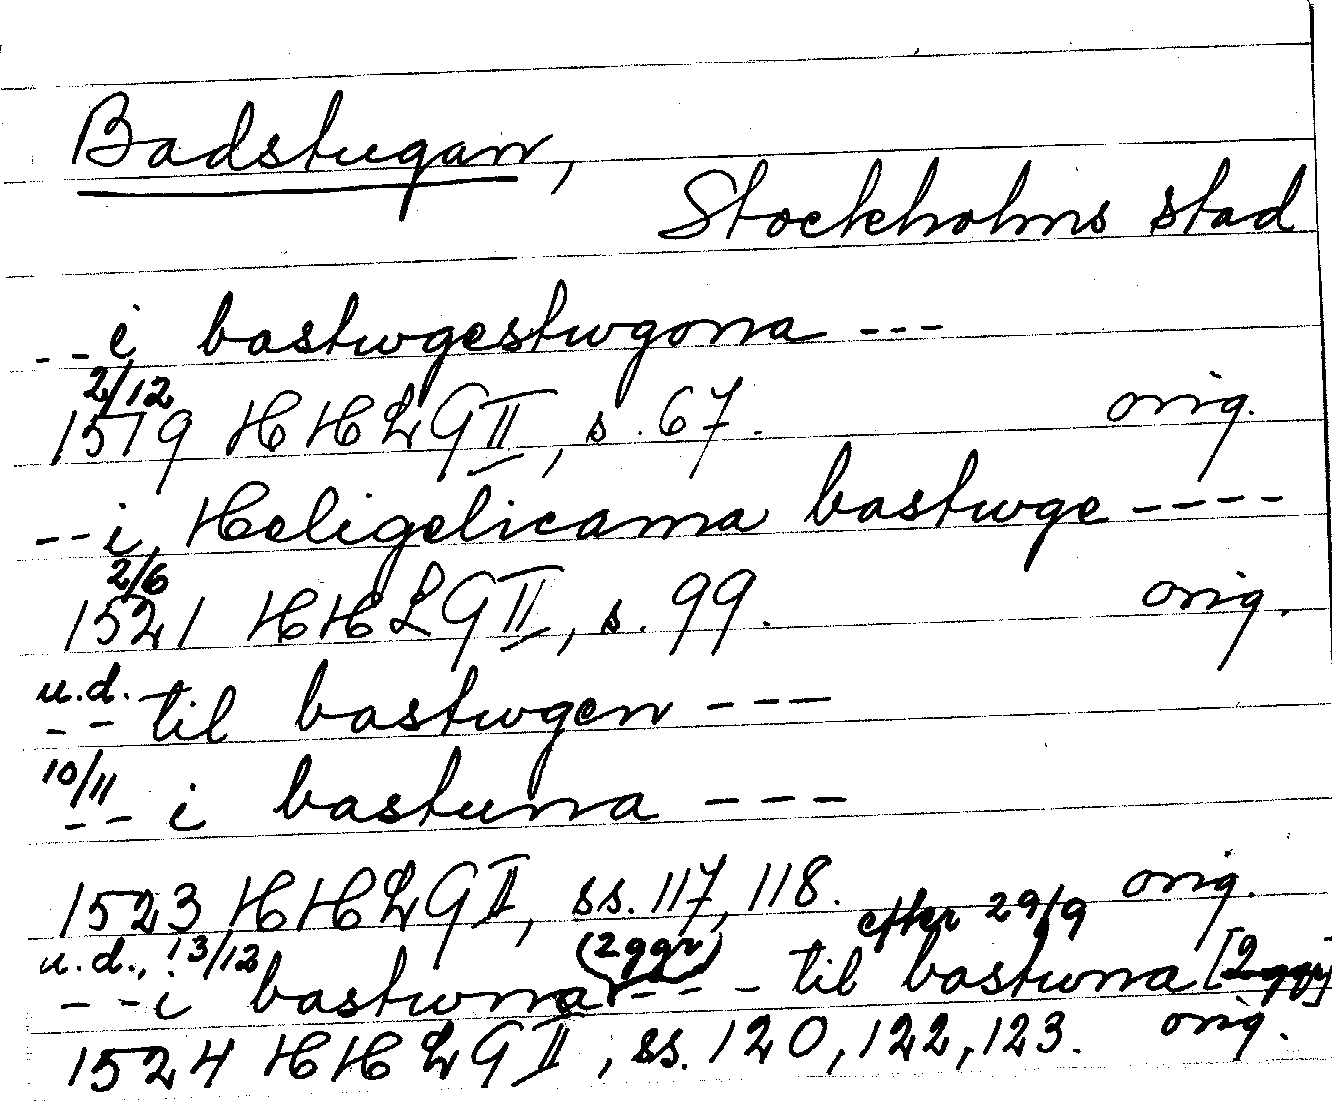 Badstugan,
Stockholms stad
--i bastwgestwgonna ---
2/12
1519 HHLG II, s. 67. orig.
--i Heligelicama bastwge ----
2/6
1521 HHLG II, s. 99. orig.
u.d.
-- til bastwgen ---
10/11
-- i bastunna ---
1523 HHLG II, ss. 117, 118. orig.
u.d., 13/12 (2 ggr) efter 29/9
--i bastwnna --- til bastwna [2 ggr]
1524 HHLG II, ss. 120, 122, 123. orig.